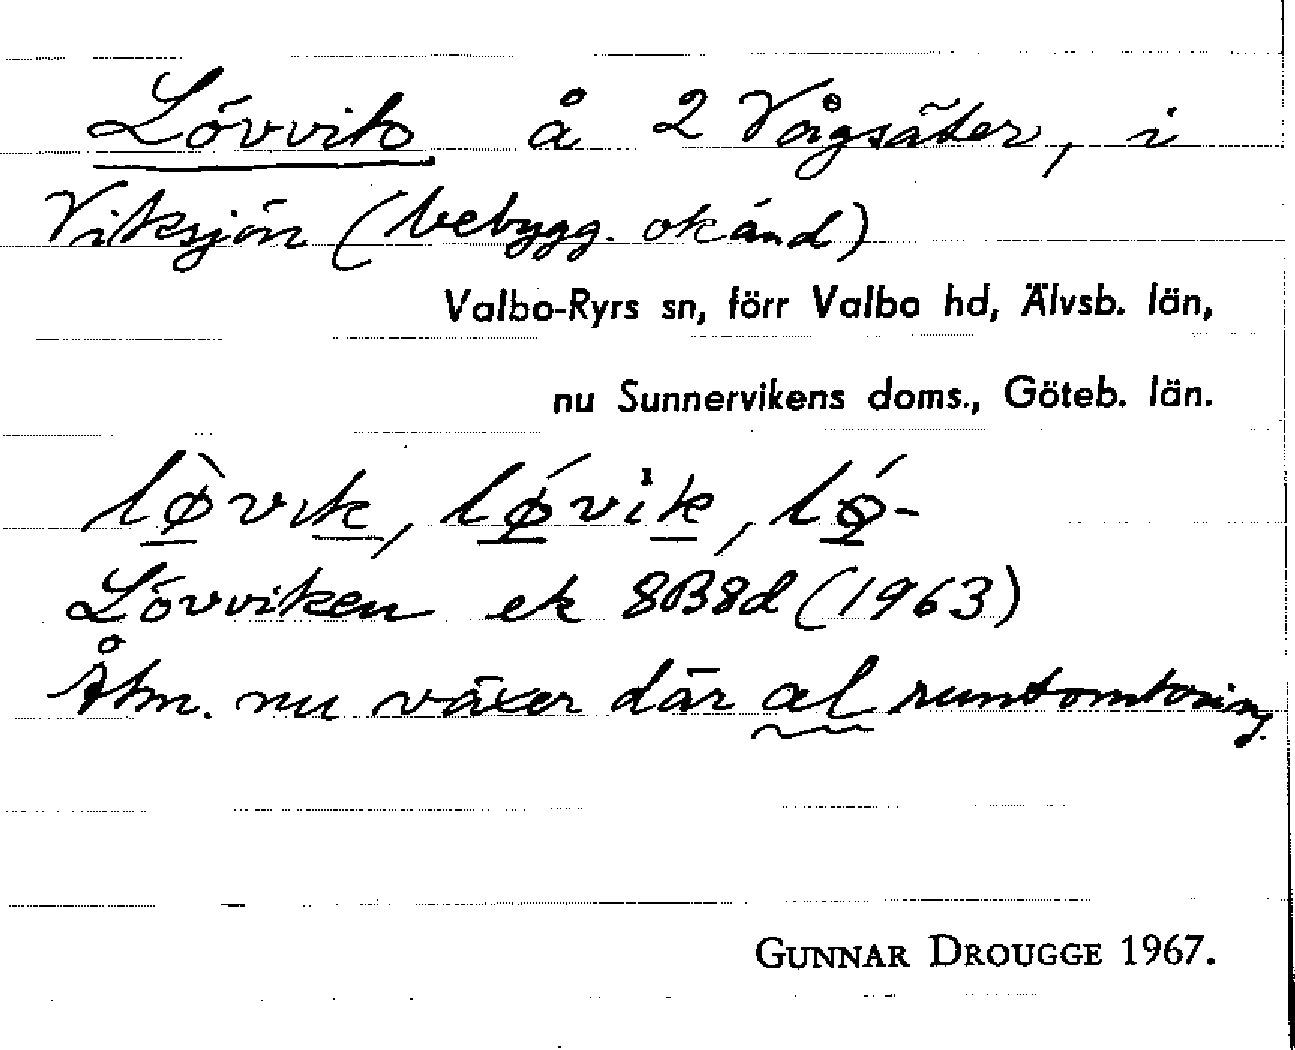 Lövvik å 2 Vågsäter, i
Viksjön (bebygg. okänd)
Valbo-Ryrs sn, förr Valbo hd, Älvsb. län,
nu Sunnervikens doms., Göteb. län.
lø̀vık, lǿvìk, lǿ-
Lövviken ek 8B8d (1963)
Åtm. nu växer där al runtomkring.
GUNNAR DROUGGE 1967.